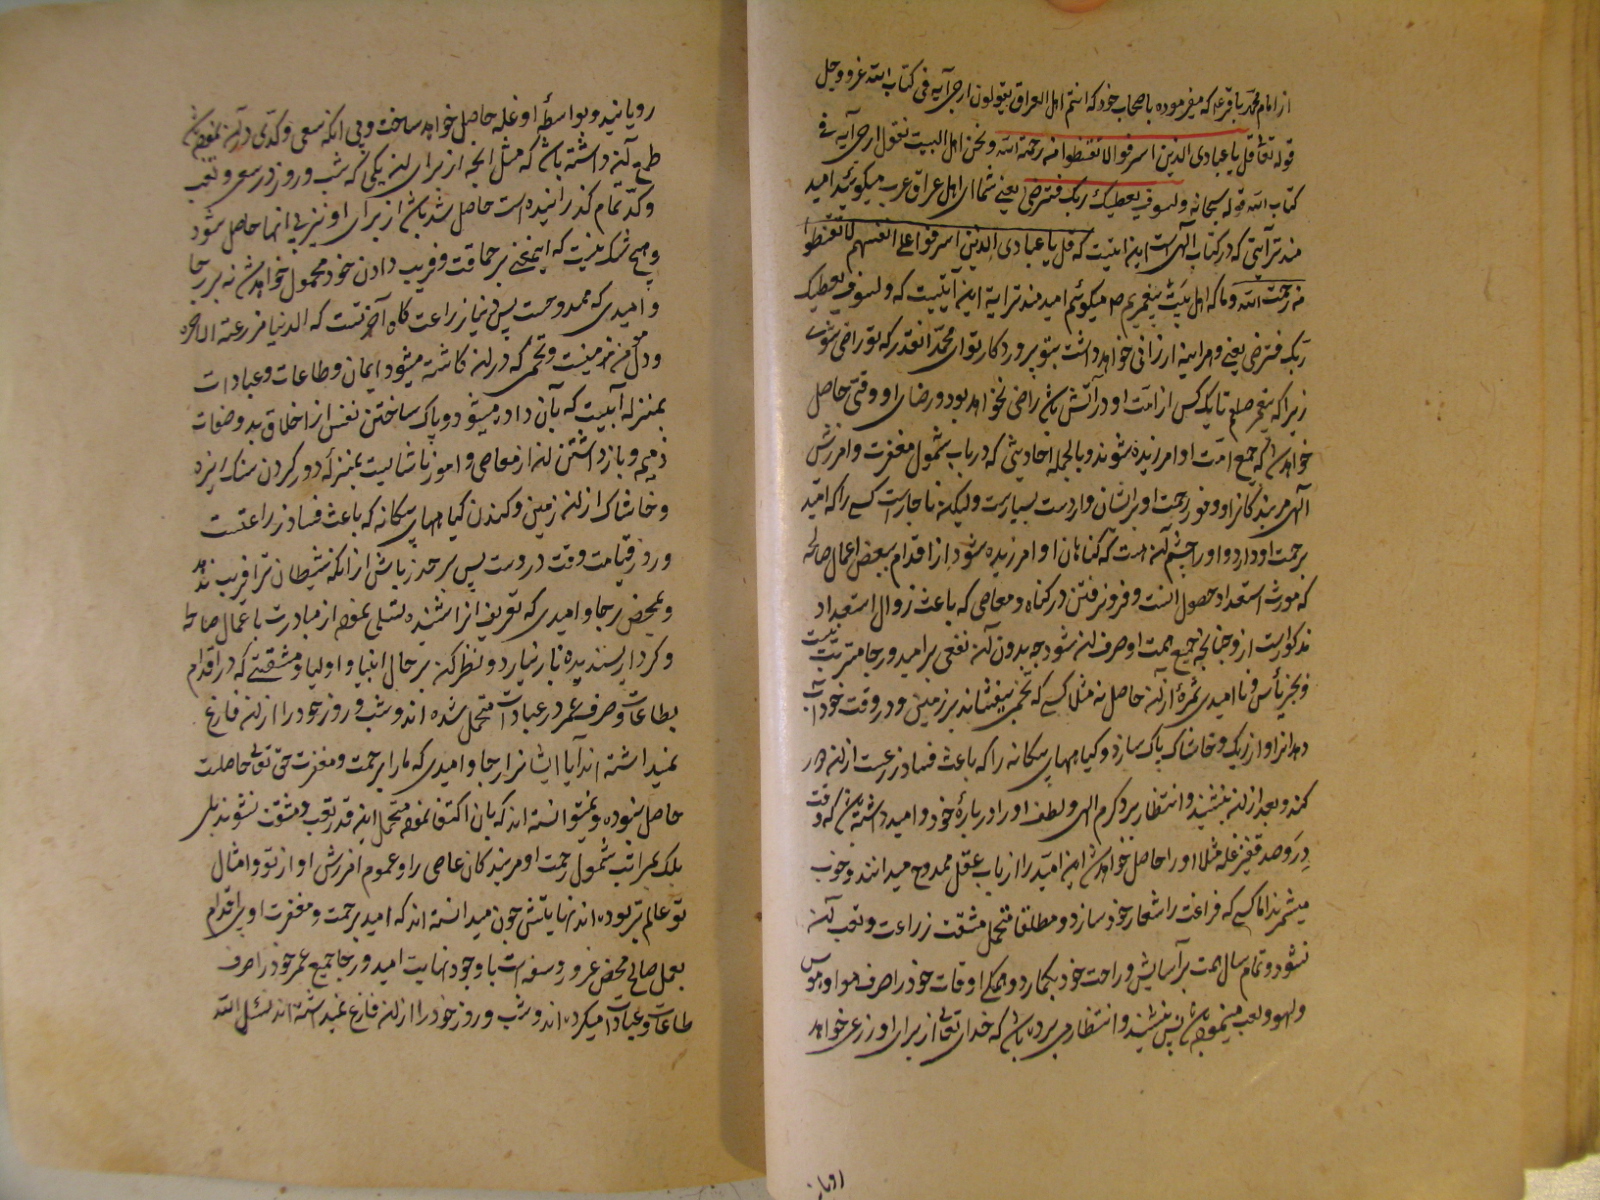 از امام محمد باقر عه که میفرموده باصحاب خود که انتم اهل العراق یقولون ارجی آیه فی کتاب الله عز و جل
قوله تعا قل یا عبادی الذین اسرفوا لا تقنطوا من رحمة الله و نحن اهل البیت نقول ارجی آیه فی
کتاب الله قوله سبحانه ولسوف یعطیک ربک فترضی یعنی شما ای اهل عراق عرب میکوئید امید
مند تر آیتی که در کتاب الهی است این اینیت که قل یا عبادی الذین اسرفوا علی انفسهم لا تقنطوا
من رحمت الله و ما که اهل بیت پیغمبریم صه میکوئیم امید مند ترایة این آیتیست که ولسوف یعطیک
ربک فترضی یعنی و هراینه ارزانی خواهد داشت بتو پروردکار تو ای محمد انقدر که تو راضی شوی
زیرا که پیغمبر صلعم تا یک کس از امت او در آتش باشد راضی نخواهد بود و رضای او وقتی حاصل
خواهد شد که جمیع امت او امرزیده شوند و بالجمله احادیثی که در باب شمول مغفرت و امرزش
الهی مر بندکانرا و وفور رحمت او بر ایشان وارد است بسیارست ولیکن ناچارست کسی را که امید
برحمت او دارد و او را چشم آنست که کناهان او امرزیده شود از اقدام ببعض اعمال صالحه
که مورث استعداد حصول انست و فرو نرفتن در کناه و معاصی که باعث زوال استعداد
مذکورست از و چنانچه جمیع همت او صرف ان شود چه بدون آن نفعی بر امید و رجا مترتب نیست
و بجز یأس و نا امیدی ثمرۀ ازان حاصل نه مثلا کسی که تخمی بیفشاند بر زمین و در وقت خود آب
دهد انرا و از ریک و خاشاک پاک سازد و کیاههای بیکانه را که باعث فساد زرعست ازان دور
کند و بعد ازان بنشیند و انتظار برد کرم الهی و لطف او را دربارۀ خود و امید داشته باشد که وقت
درو صد قفیز غله مثلا او را حاصل خواهد شد این امید را ارباب عقل ممدوح میدانند و خوب
میشمرند اما کسی که فراغت را شعار خود سازد و مطلقا متحمل مشقت زراعت و تعب آن
نشود و تمام سال همت بر آسایش و راحت خود بکمارد و همکی اوقات خود را صرف هوا و هوس
و لهو و لعب مینموده باشد پس بنشیند و انتظار می برده باشد که خدای تعا از برای او زرعی خواهد
رویا
رویانید و بواسطۀ او غله حاصل خواهد ساخت و بی انکه سعی و کدی در آن نموده باشد
طمع آن داشته باشد که مثل انچه از برای ان یکی که شب و روز در سعی و تعب
و کد تمام کذرانیده است حاصل شد باشد از برای او نیز بی انها حاصل شود
و هیچ شک نیست که اینمعنی بر حماقت و فریب دادن خود محمول خواهد شد نه بر رجا
و امیدی که ممدوحست پس دنیا نیز زراعت کاه آخرتست که الدنیا مزرعة الاخره
و دل مؤمن زمینست و تخمی که دران کاشته میشود ایمان و طاعات و عبادات
بمنزله آبیست که بآن داده میشود و پاک ساختن نفس از اخلاق بد و صفات
ذمیمه و باز داشتن ان از معاصی و امور ناشایست بمنزلۀ دور کردن سنک ریزه
و خاشاک ازان زمین و کندن کیاههای بیکانه که باعث فساد زراعتست
و روز قیامت وقت دروست پس بر حذر باش از انکه شیطان ترا فریب ندهد
و بمحض رجا و امیدی که تعریف انرا شنیده تسلی نموده از مبادرت باعمال صالحه
و کردار پسندیده باز نیارد و نظر کن بر حال انبیا و اولیا و مشقتی که در اقدام
بطاعات و صرف عمر در عبادات متحمل شده اند و شب و روز خود را ازان فارغ
نمیداشته اند آیا ایشانرا رجا و امیدی که ما را برحمت و مغفرت حق تعالی حاصلست
حاصل نبوده و نمیتوانسته اند که بان اکتفا نموده متحمل این قدر تعب و مشقت نشوند بلی
بلکه بمراتب شمول رحمت او مر بندکان عاصی را و عموم امرزش او از تو و امثال
تو عالم تر بوده اند نهایتش چون میدانسته اند که امید برحمت و مغفرت او بی اقدام
بعمل صالح محض غرور و سفه است با وجود نهایت امید و رجا جمیع عمر خود را صرف
طاعات و عبادات میکرده اند و شب و روز خود را ازان فارغ نمیداشته اند نسئل الله